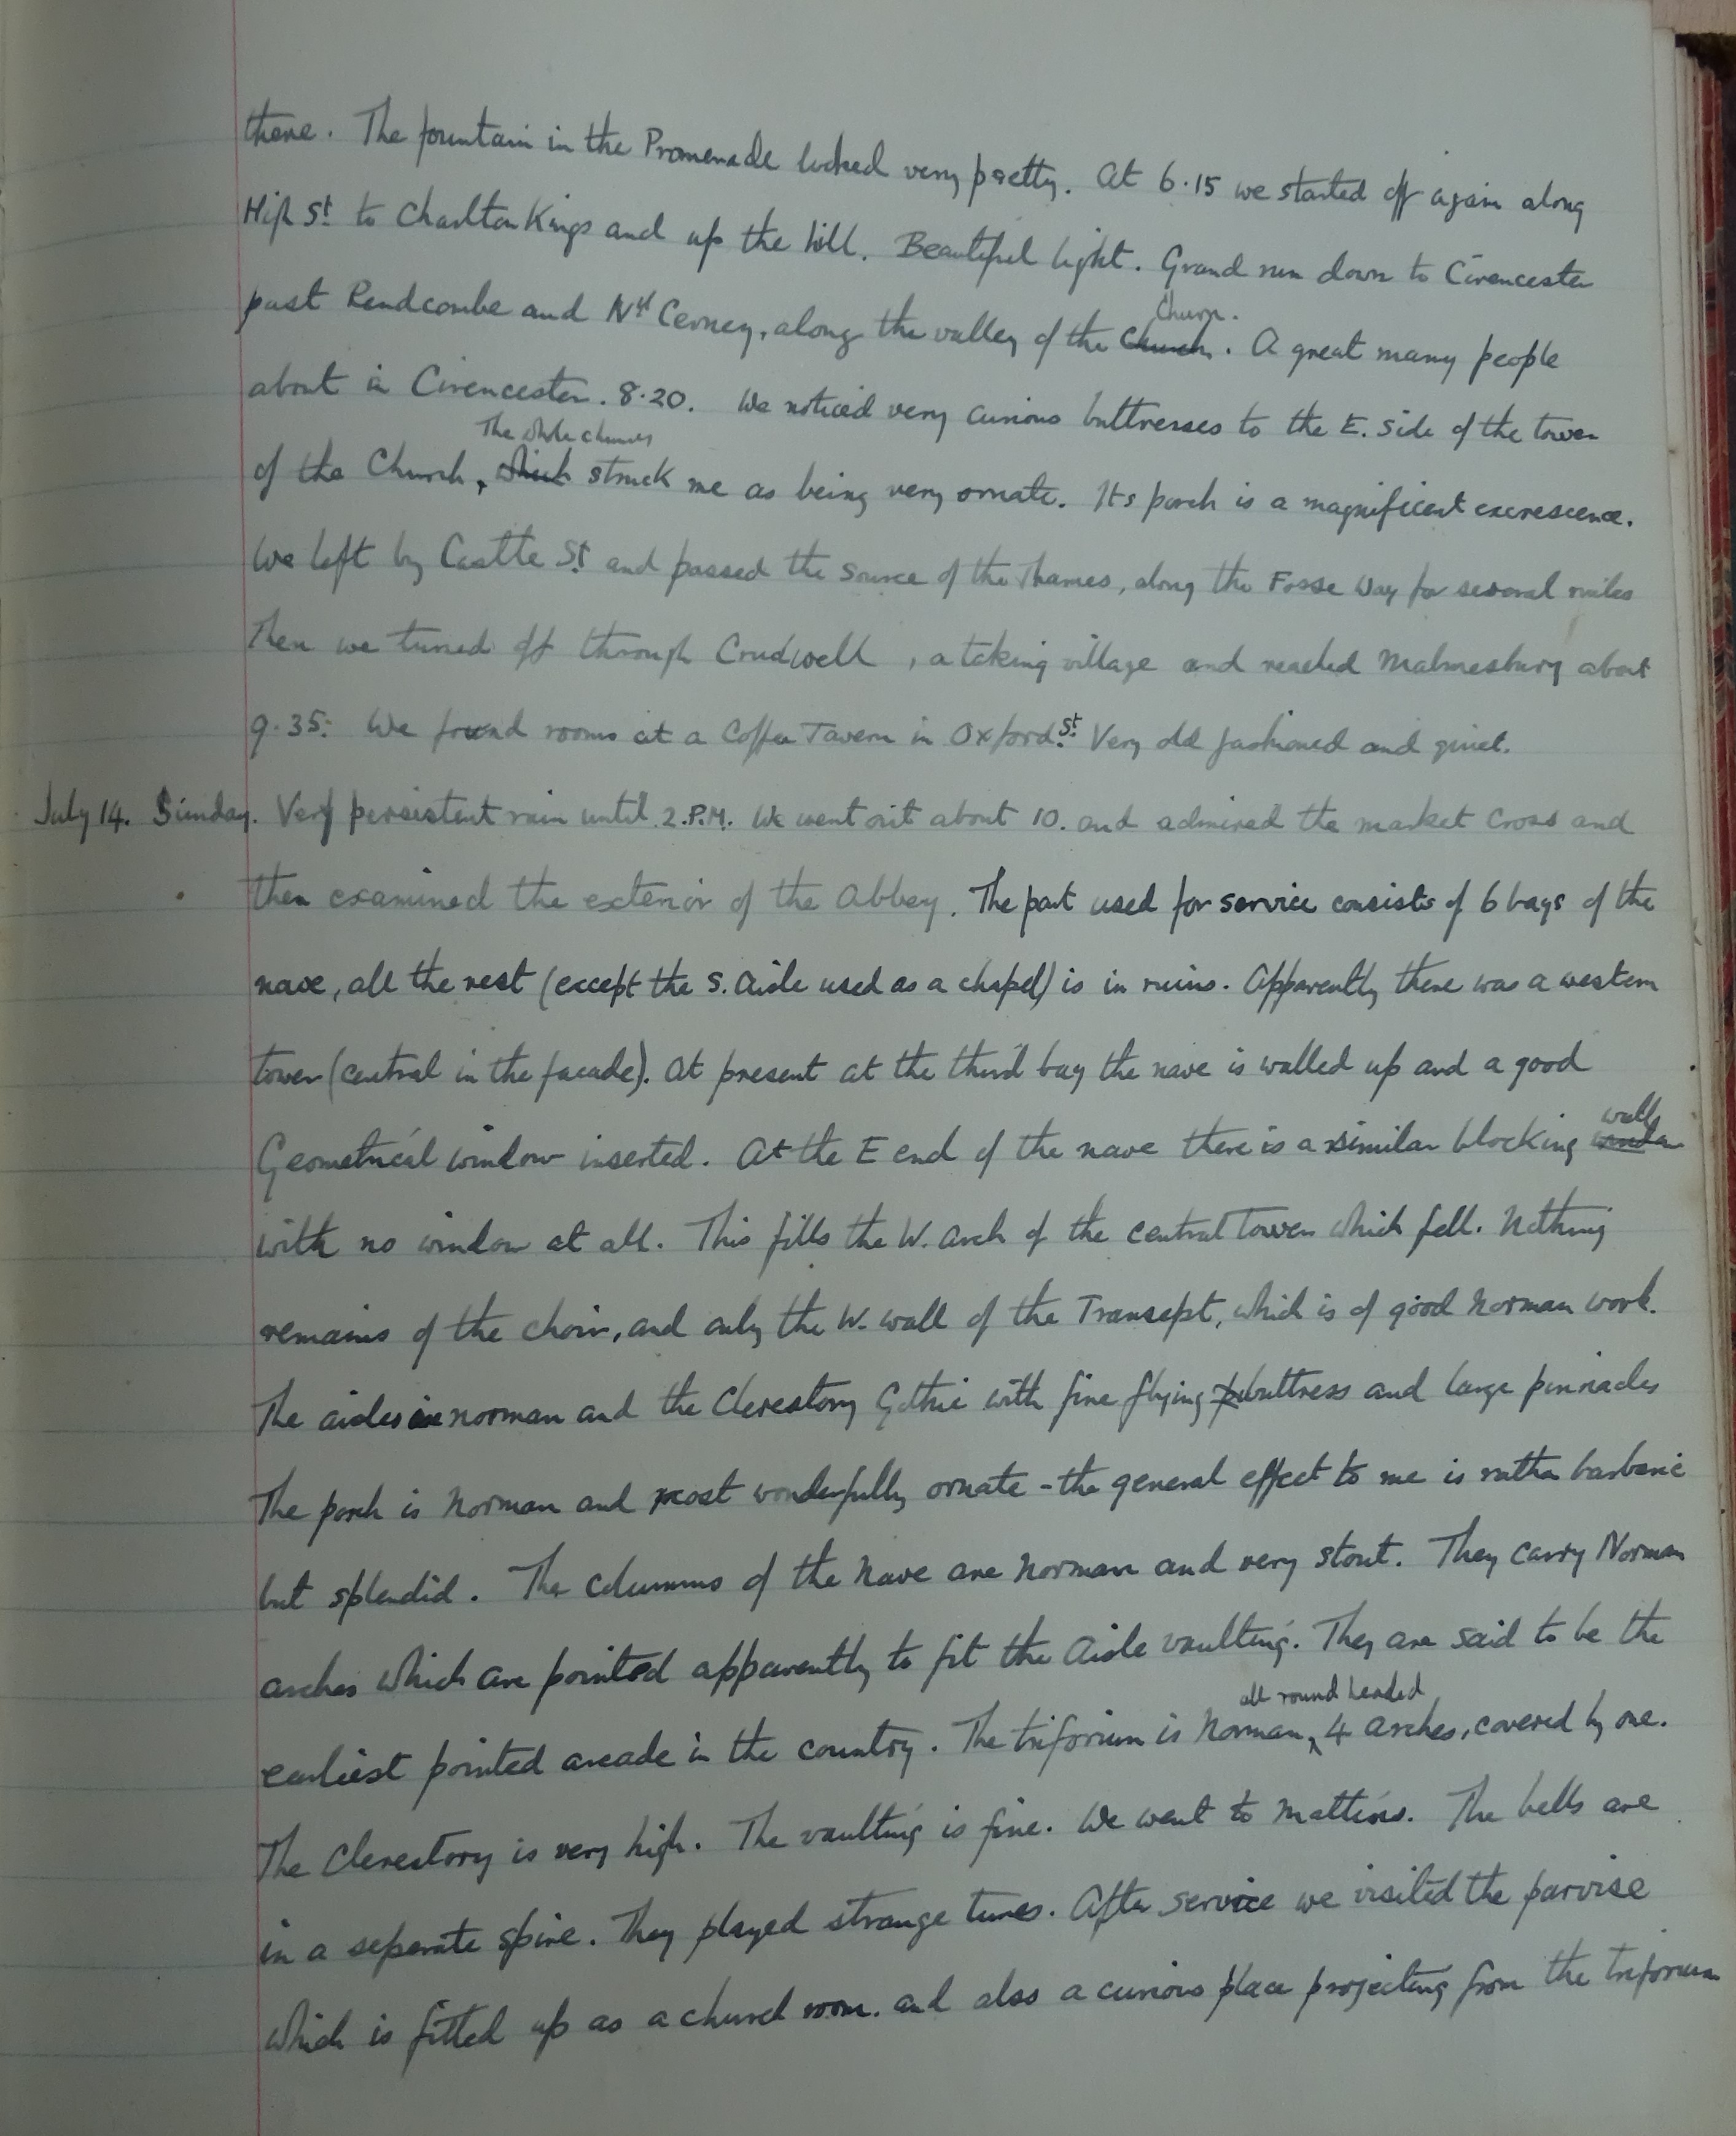 there. The fountain in the Promenade looked very pretty. At 6.15 we started off again along
High St to Charlton Kings and up the hill. Beautiful light. Grand run down to Cirencester
past Rendcombe and Nth Cerney, along the valley of the Church Churn. A great many people
about in Cirencester. 8.20. We noticed very curious buttresses to the E. side of the tower
of the Church, which The whole church struck me as being very ornate. Its porch is a magnificent excrescence.
We left by Castle St and passed the source of the Thames, along the Fosse Way for several miles
Then we turned off through Crudwell, a taking village and reached Malmesbury about
9.35. We found rooms at a Coffee Tavern in Oxford St. Very old fashioned and quiet.
July 14. Sunday. Very persistent rain until 2.P.M. We went out about 10. and admired the market cross and
then examined the exterior of the Abbey. The part used for service consists of 6 bays of the
nave, all the rest (except the S. Aisle used as a chapel) is in ruins. Apparently there was a western
tower (central in the facade). At present at the third bay the nave is walled up and a good
Geometrical window inserted. At the E end of the nave there is a similar blocking window wall
with no window at all. This fills the W. arch of the central tower which fell. Nothing
remains of the choir, and only the W. wall of the Transept, which is of good Norman work.
The aisles are norman and the Clerestory Gothic with fine flying buttress and large pinnacles
The porch is Norman and most wonderfully ornate - the general effect to me is rather barbaric
but splendid. The columns of the Nave are Norman and very stout. They carry Norman
arches which are pointed apparently to fit the Aisle vaulting. They are said to be the
earliest pointed arcade in the country. The triforium is Norman, all round headed 4 arches, covered by one.
The Clerestory is very high. The vaulting is fine. We went to Mattins. The bells are
in a seperate spire. They played strange tunes. After service we visited the parvise
which is fitted up as a church room. and also a curious place projecting from the triforium